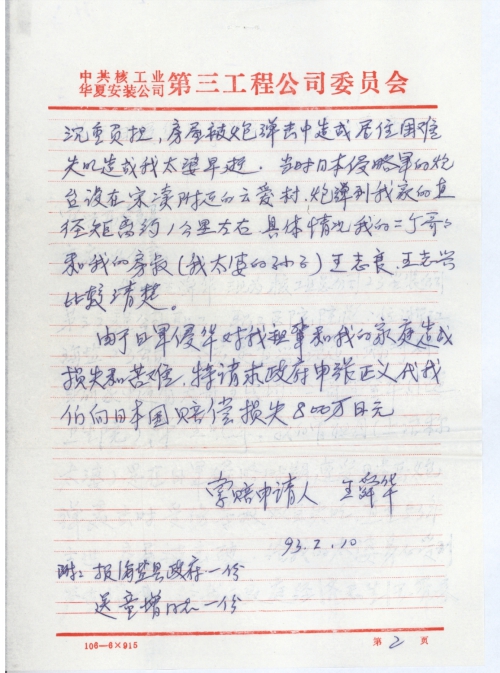 中共核工业
华夏安装公司 第三工程公司委员会
沉重负担，房屋被炮弹击中造成居住困难
失以造成我太婆早逝．当时日本侵略军的炮
台设在宋渎附近的云爱村．炮弹到我家的直
径距离约1公里左右 具体情况我的二个哥哥
和我的房叔（我太婆的孙子）王志良、王志兴
比较清楚。
由于日军侵华对我祖辈和我的家庭造成
损失和苦难，特请求政府申张正义代我
们向日本国赔偿损失800万日元
索赔申请人 王舜华
93.2.10
附：报海盐县政府一份
送童增同志一份
106—6×915
第 2 页